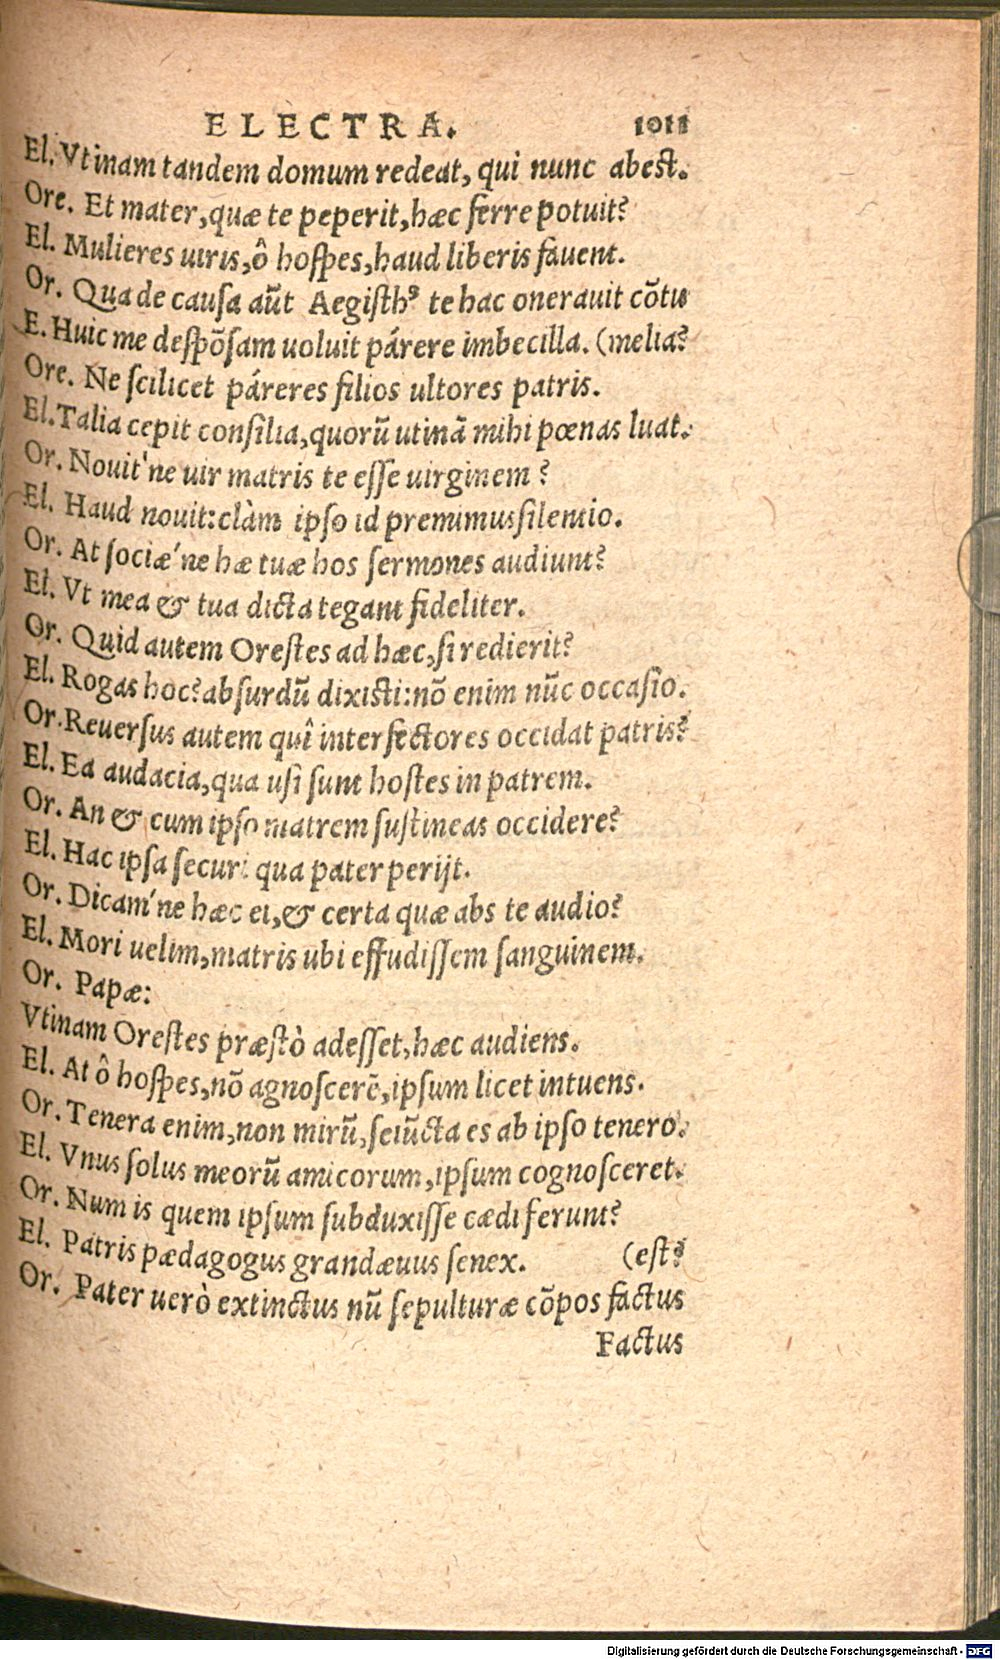 ELECTRA. 1011
El. Vtinam tandem domum redeat, qui nunc abest.
Ore. Et mater, quæ te peperit, hæc ferre potuit?
El. Mulieres uiris, ô hospes, haud liberis fauent.
Or. Qua de causa aūt Aegisthꝰ te hac onerauit cōtu
E. Huic me despōsam uoluit párere imbecilla. (melia?
Ore. Ne scilicet páreres filios ultores patris.
El. Talia cepit consilia, quorū utinā mihi pœnas luat.
Or. Nouit'ne uir matris te esse uirginem?
El. Haud nouit: clàm ipso id premimus silentio.
Or. At sociæ'ne hæ tuæ hos sermones audiunt?
El. Vt mea & tua dicta tegant fideliter.
Or. Quid autem Orestes ad hæc, si redierit?
El. Rogas hoc? absurdū dixisti: nō enim nūc occasio.
Or. Reuersus autem quî interfectores occidat patris?
El. Ea audacia, qua usi sunt hostes in patrem.
Or. An & cum ipso matrem sustineas occidere?
El. Hac ipsa securi qua pater perijt.
Or. Dicam'ne hæc ei, & certa quæ abs te audio?
El. Mori uelim, matris ubi effudissem sanguinem.
Or. Papæ:
Vtinam Orestes præstò adesset, hæc audiens.
El. At ô hospes, nō agnoscerē, ipsum licet intuens.
Or. Tenera enim, non mirū, seiūcta es ab ipso tenero.
El. Vnus solus meorū amicorum, ipsum cognosceret.
Or. Num is quem ipsum subduxisse cædi ferunt?
El. Patris pædagogus grandæuus senex. (est?
Or. Pater uerò extinctus nū sepulturæ cōpos factus
Factus
Digitalisierung gefördert durch die Deutsche Forschungsgemeinschaft - DFG